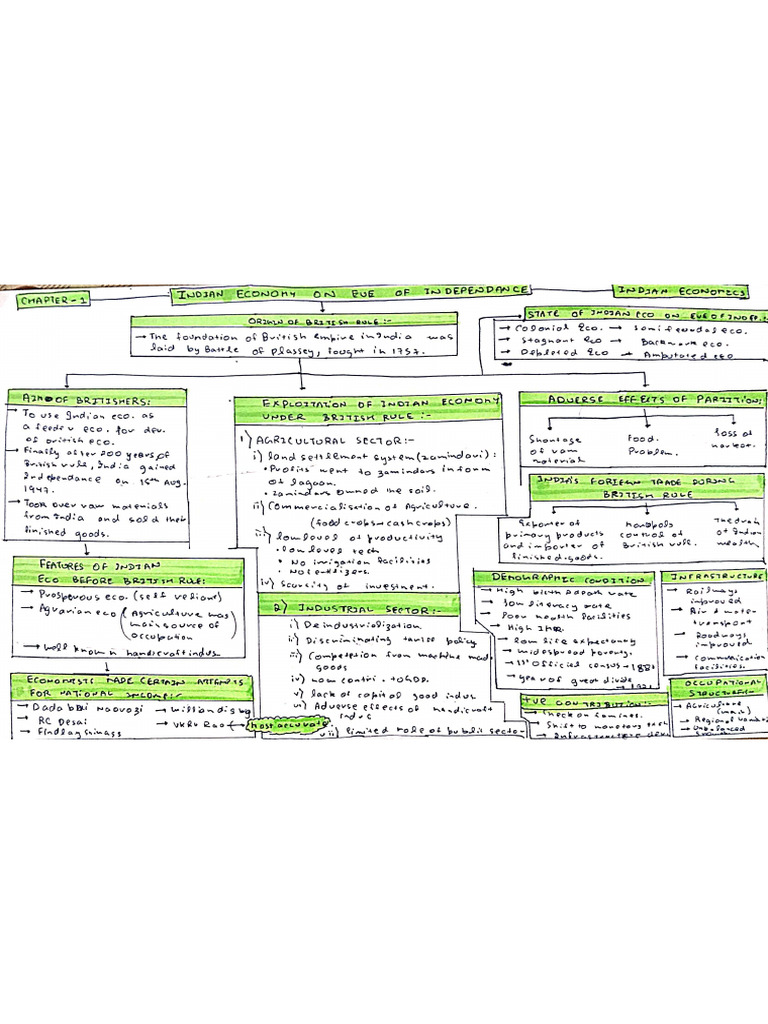 CHAPTER-1
INDIAN ECONOMY ON EVE OF INDEPENDANCE
INDIAN ECONOMICS
ORIGIN OF BRITISH RULE:-
→ The foundation of British Empire in India was
laid by Battle of Plassey, fought in 1757.
STATE OF INDIAN ECO ON EVE OF INDEP.:-
→ Colonial Eco. → Semi feudal eco.
→ Stagnant eco → Backward eco.
→ Depleted Eco → Amputated eco
AIM OF BRITISHERS:
→ To use Indian eco. as
a feeder eco. for dev.
of british eco.
→ Finally after 200 years of
British rule, India gained
Independance on 15th Aug.
1947.
→ Took over raw materials
from India and sold their
finished goods.
FEATURES OF INDIAN
ECO BEFORE BRITISH RULE:
→ Prosperous eco. (self reliant)
→ Agrarian eco (Agriculture was
main source of
occupation)
→ well known in handicraft indus.
ECONOMISTS MADE CERTAIN ATTEMPTS
FOR NATIONAL INCOME:-
→ Dada bhai Naorozi → william disby
→ RC Desai → VKRV Rao → most accurate
→ Findlay shirass
EXPLOITATION OF INDIAN ECONOMY
UNDER BRITISH RULE:-
1) AGRICULTURAL SECTOR:-
i) land settlement system (zamindari):
• Profits went to zamindars in form
of lagaan.
• zamindars owned the soil.
ii) Commercialisation of Agriculture.
(food crops→cash crops)
iii) low level of productivity
• low level tech
• No irrigation facilities
• No fertilizers.
iv) Scarcity of investment.
2) INDUSTRIAL SECTOR:-
i) Deindustrialization
ii) Discriminating tariff policy
iii) Competition from machine mad
goods
iv) low contri. to GDP.
v) lack of capital good indus.
vi) Adverse effects of handicraft
indus
vii) limited role of public secto
ADVERSE EFFECTS OF PARTITION:
Shortage
of raw
material
Food
Problem.
loss of
INDIA'S FOREIGN TRADE DURING
BRITISH RULE
Exporter of
primary products
and importer of
finished goods.
Monopoly
control of
British rule.
The drain
of Indian
wealth
DEMOGRAPHIC CONDITION
→ High birth & death rate
→ low literacy rate
→ Poor health facilities
→ High IMR.
→ low life expectancy
→ widespread poverty.
→ 1st official census → 1881
→ year of great divide
→ 1921
+VE CONTRIBUTION:-
→ Check on famines.
→ Shift to monetary
→ Infrastructure dev.
INFRASTRUCTURE
→ Railways
improved
→ Air & water
transport
→ Roadways
improved
→ Communication
facilities.
OCCUPATIONAL
STRUCTURE:-
→ Agriculture
(main)
→ Regional
→ Unbalanced